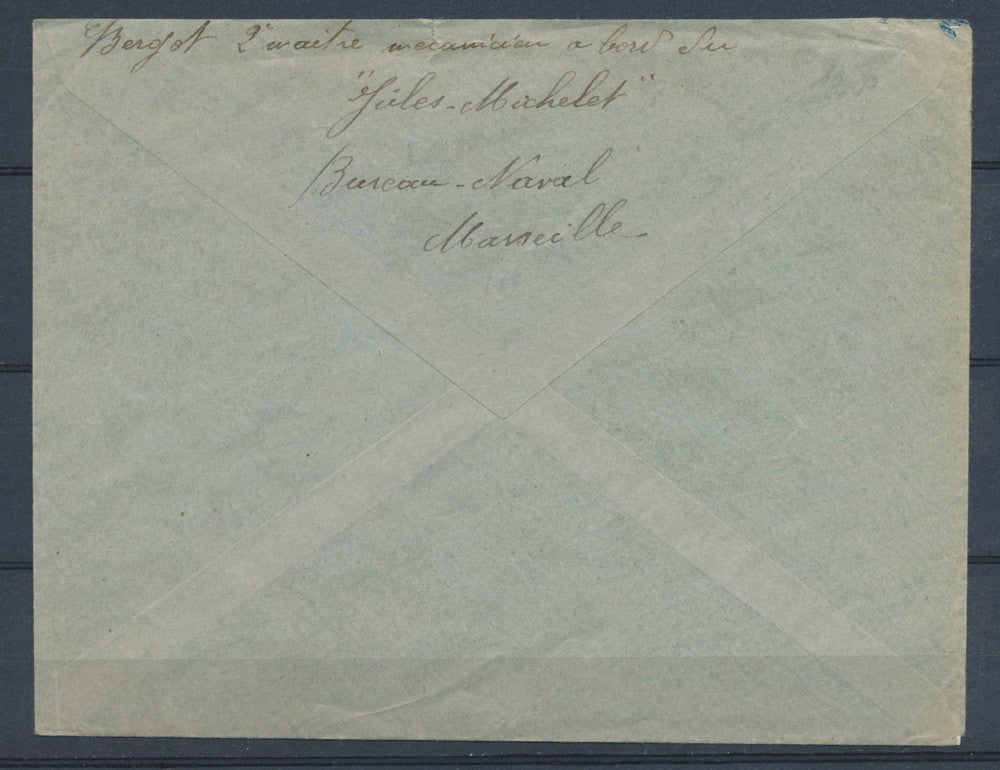 Bergot 2e maitre mecanicien a bord du
"Jules-Michelet"
Bureau-Naval
Marseille